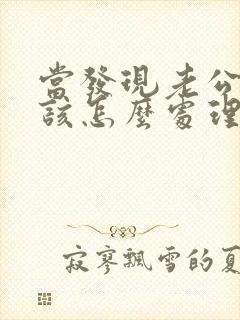 當發現老公
該怎麼處理
寂寥飄雪的夏